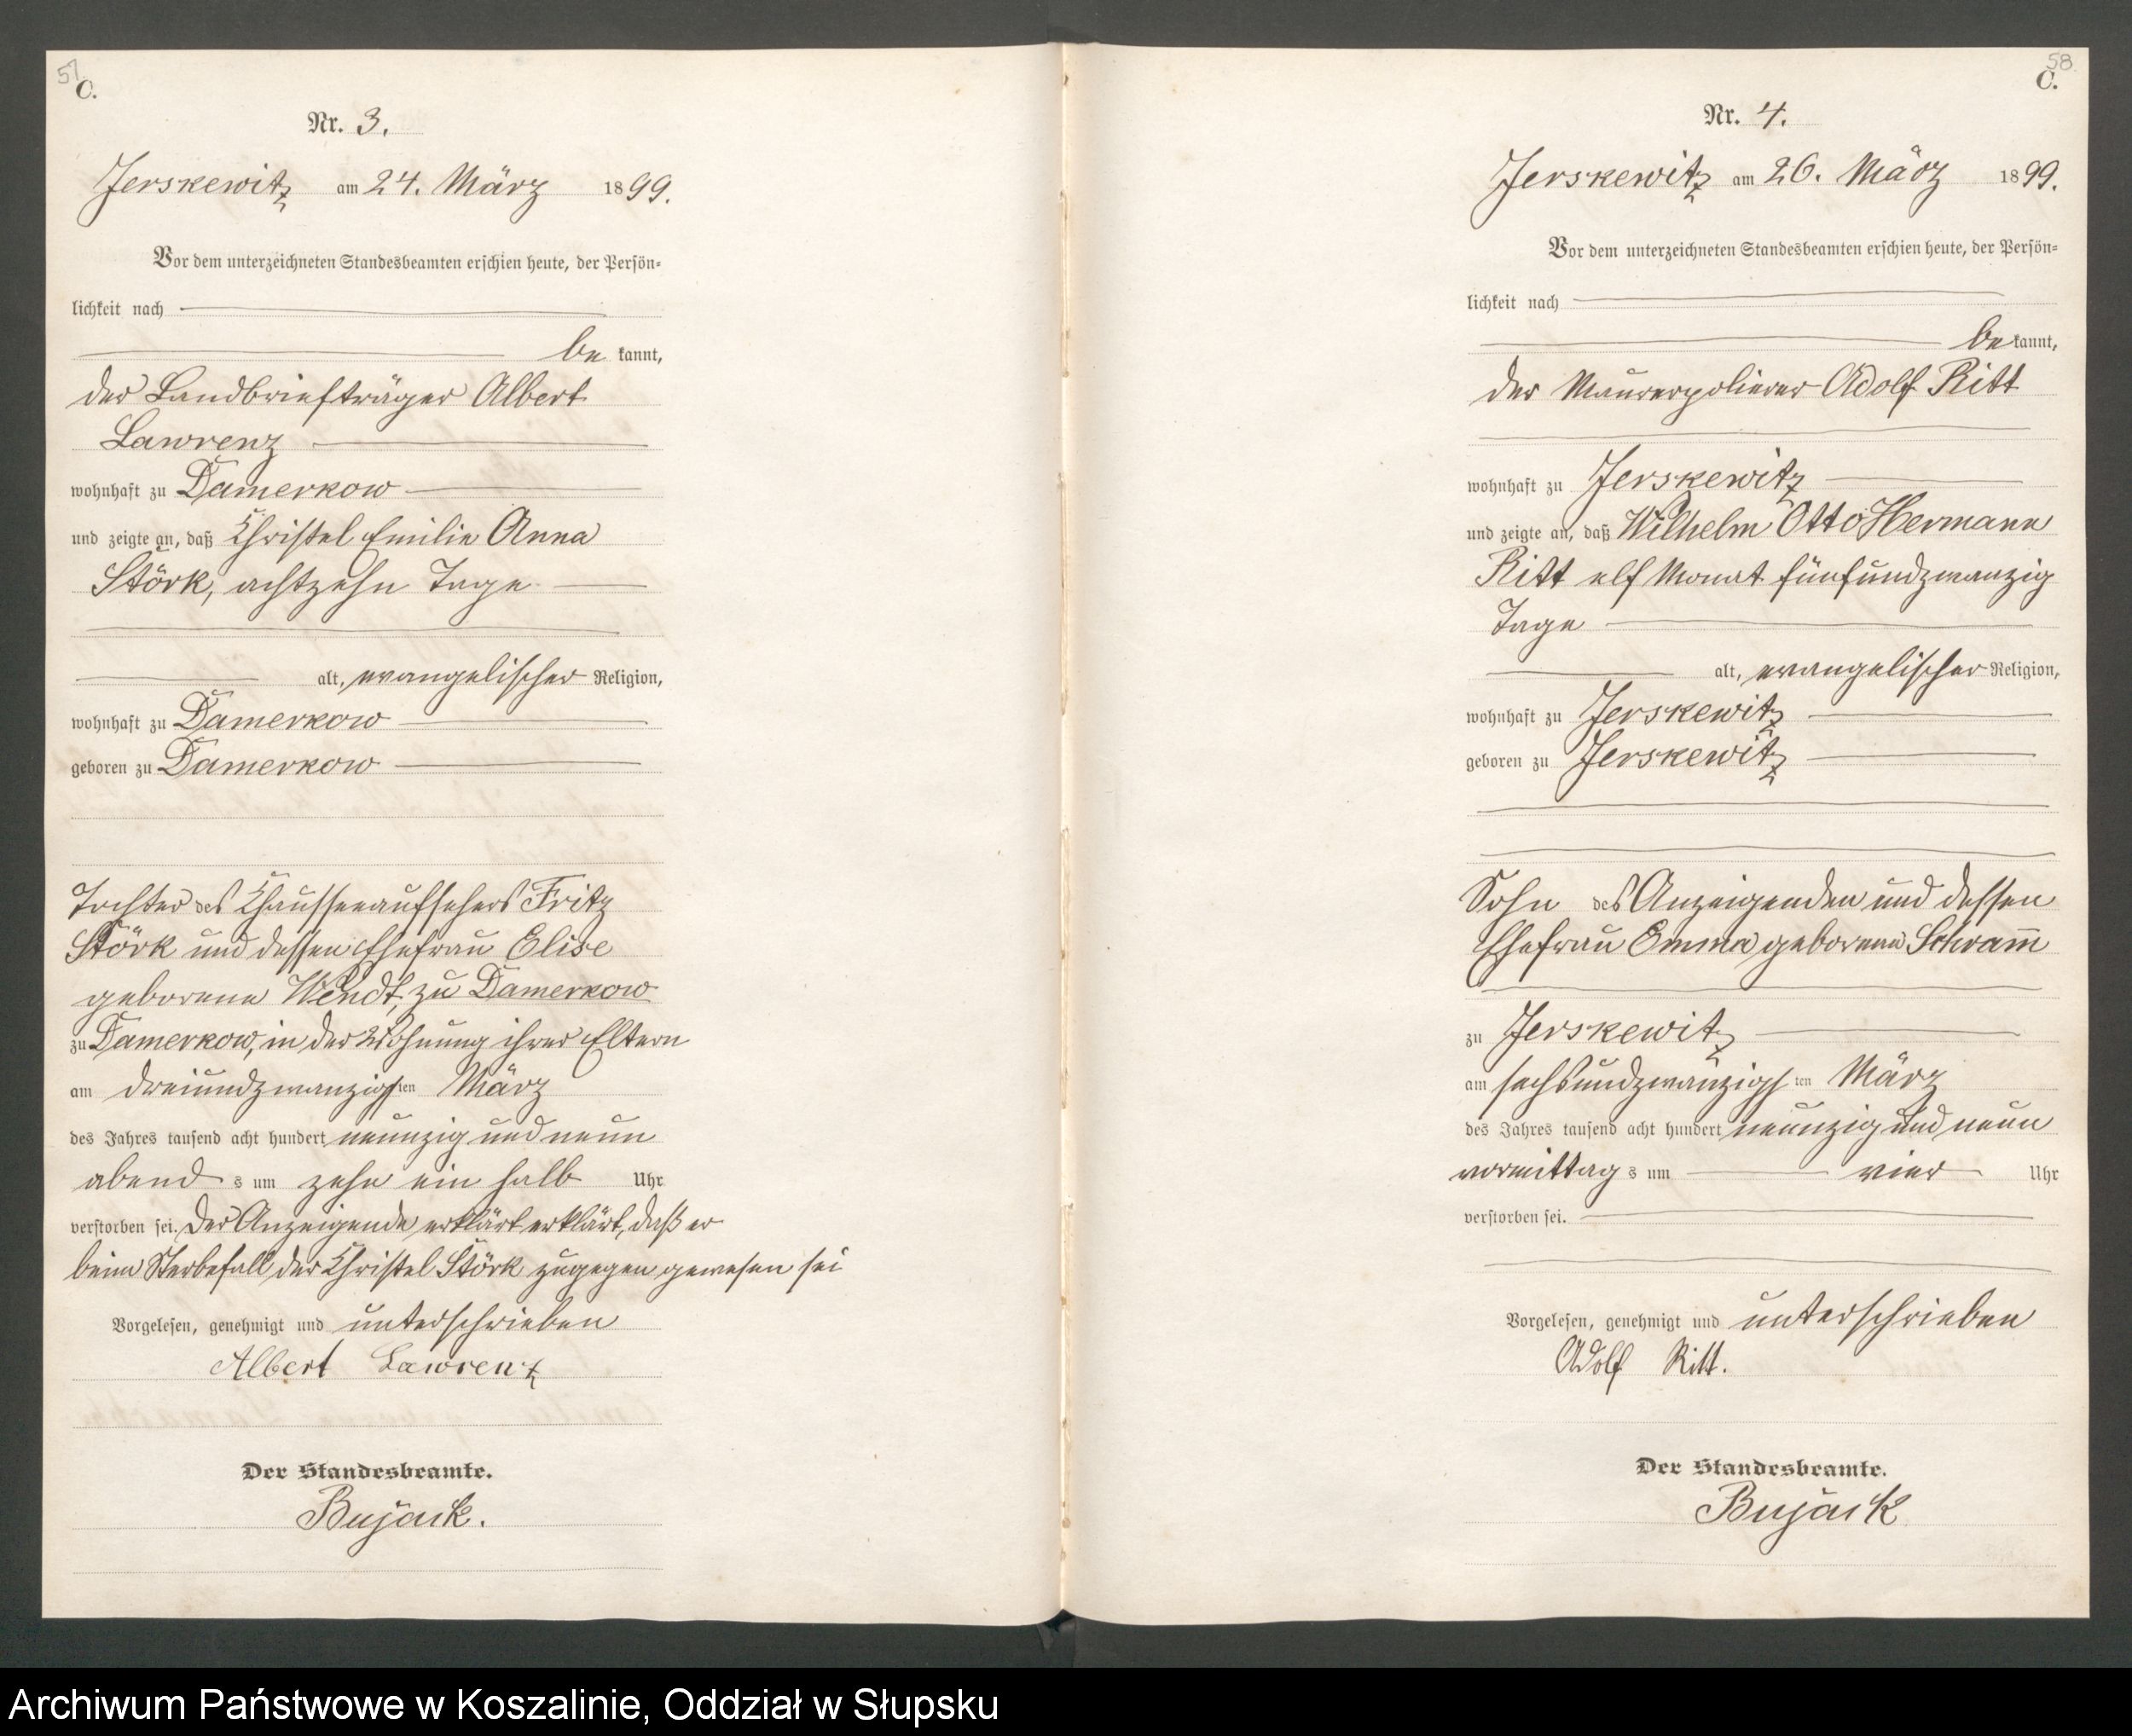 57
C.
Nr. 3.
Jerskewitz am 24. März 1899.
Vor dem unterzeichneten Standesbeamten erschien heute, der Persön-
lichkeit nach
be kannt,
der Landbriefträger Albert
Lawrenz
wohnhaft zu Damerkow
und zeigte an, daß Christel Emilie Anna
Störk, achtzehn Tage
alt, evangelischer Religion,
wohnhaft zu Damerkow
geboren zu Damerkow
Tochter des Chausseeaufsehers Fritz
Störk und dessen Ehefrau Elise
geborene Wendt, zu Damerkow
zu Damerkow, in der Wohnung ihrer Eltern
am dreiundzwanzigsten März
des Jahres tausend acht hundert neunzig und neun
abend s um zehn ein halb Uhr
verstorben sei. Der Anzeigende erklärt erklärt, daß er
beim Sterbefall der Christel Störk zugegen gewesen sei
Vorgelesen, genehmigt und unterschrieben
Albert Lawrenz
Der Standesbeamte.
Bujack.
58
C.
Nr. 4.
Jerskewitz am 26. März 1899.
Vor dem unterzeichneten Standesbeamten erschien heute, der Persön-
lichkeit nach
be kannt,
der Maurerpolierer Adolf Ritt
wohnhaft zu Jerskewitz
und zeigte an, daß Wilhelm Otto Hermann
Ritt elf Monat fünfundzwanzig
Tage
alt, evangelischer Religion,
wohnhaft zu Jerskewitz
geboren zu Jerskewitz
Sohn des Anzeigenden und dessen
Ehefrau Emma geborene Schram̅
zu Jerskewitz
am sechsundzwanzigsten März
des Jahres tausend acht hundert neunzig und neun
vormittag s um vier Uhr
verstorben sei.
Vorgelesen, genehmigt und unterschrieben
Adolf Ritt.
Der Standesbeamte.
Bujack
Archiwum Państwowe w Koszalinie, Oddział w Słupsku